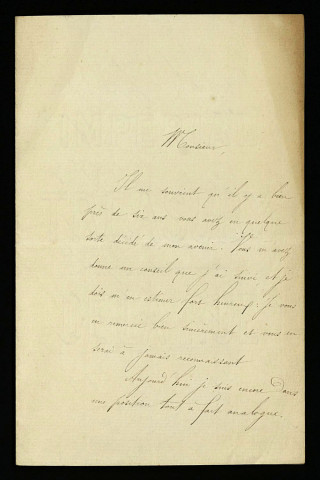 Monsieur,
Il me souvient qu'il y a bien
près de six ans vous avez en quelque
sorte décidé de mon avenir. Vous m'avez
donné un conseil que j'ai suivi et je
dois m'en estimer fort heureux. Je vous
en remercie bien sincèrement et vous en
serai à jamais reconnaissant
Aujourd'hui je suis encore dans
une position tout à fait analogue.